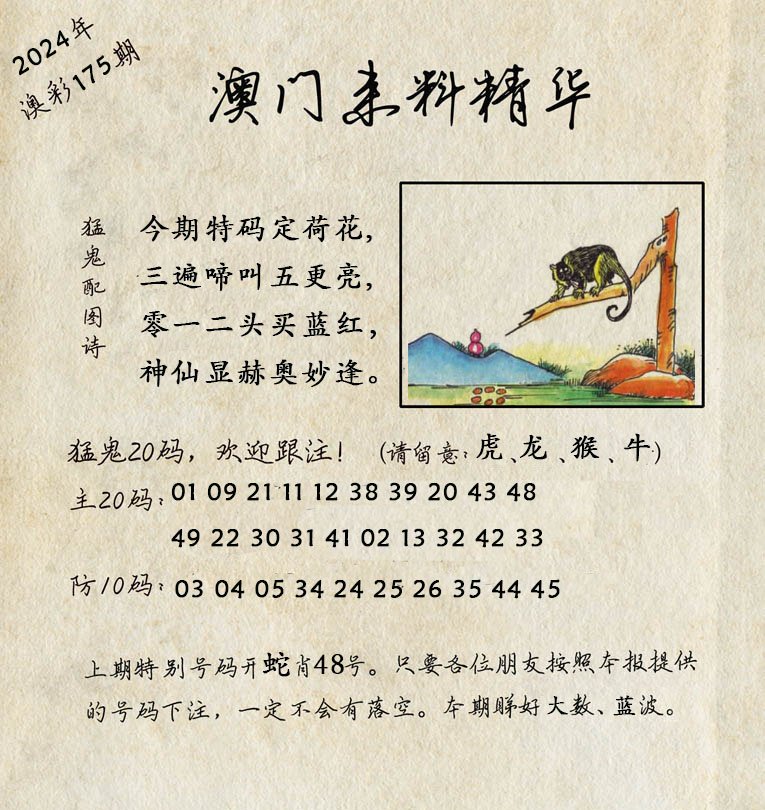 2024年
澳彩175期
澳门来料精华
猛鬼配图诗
今期特码定荷花，
三遍啼叫五更亮，
零一二头买蓝红，
神仙显赫奥妙逢。
猛鬼20码，欢迎跟注！（请留意：虎、龙、猴、牛）
主20码：01 09 21 11 12 38 39 20 43 48
49 22 30 31 41 02 13 32 42 33
防10码：03 04 05 34 24 25 26 35 44 45
上期特别号码开蛇肖48号。只要各位朋友按照本报提供
的号码下注，一定不会有落空。本期睇好大数、蓝波。